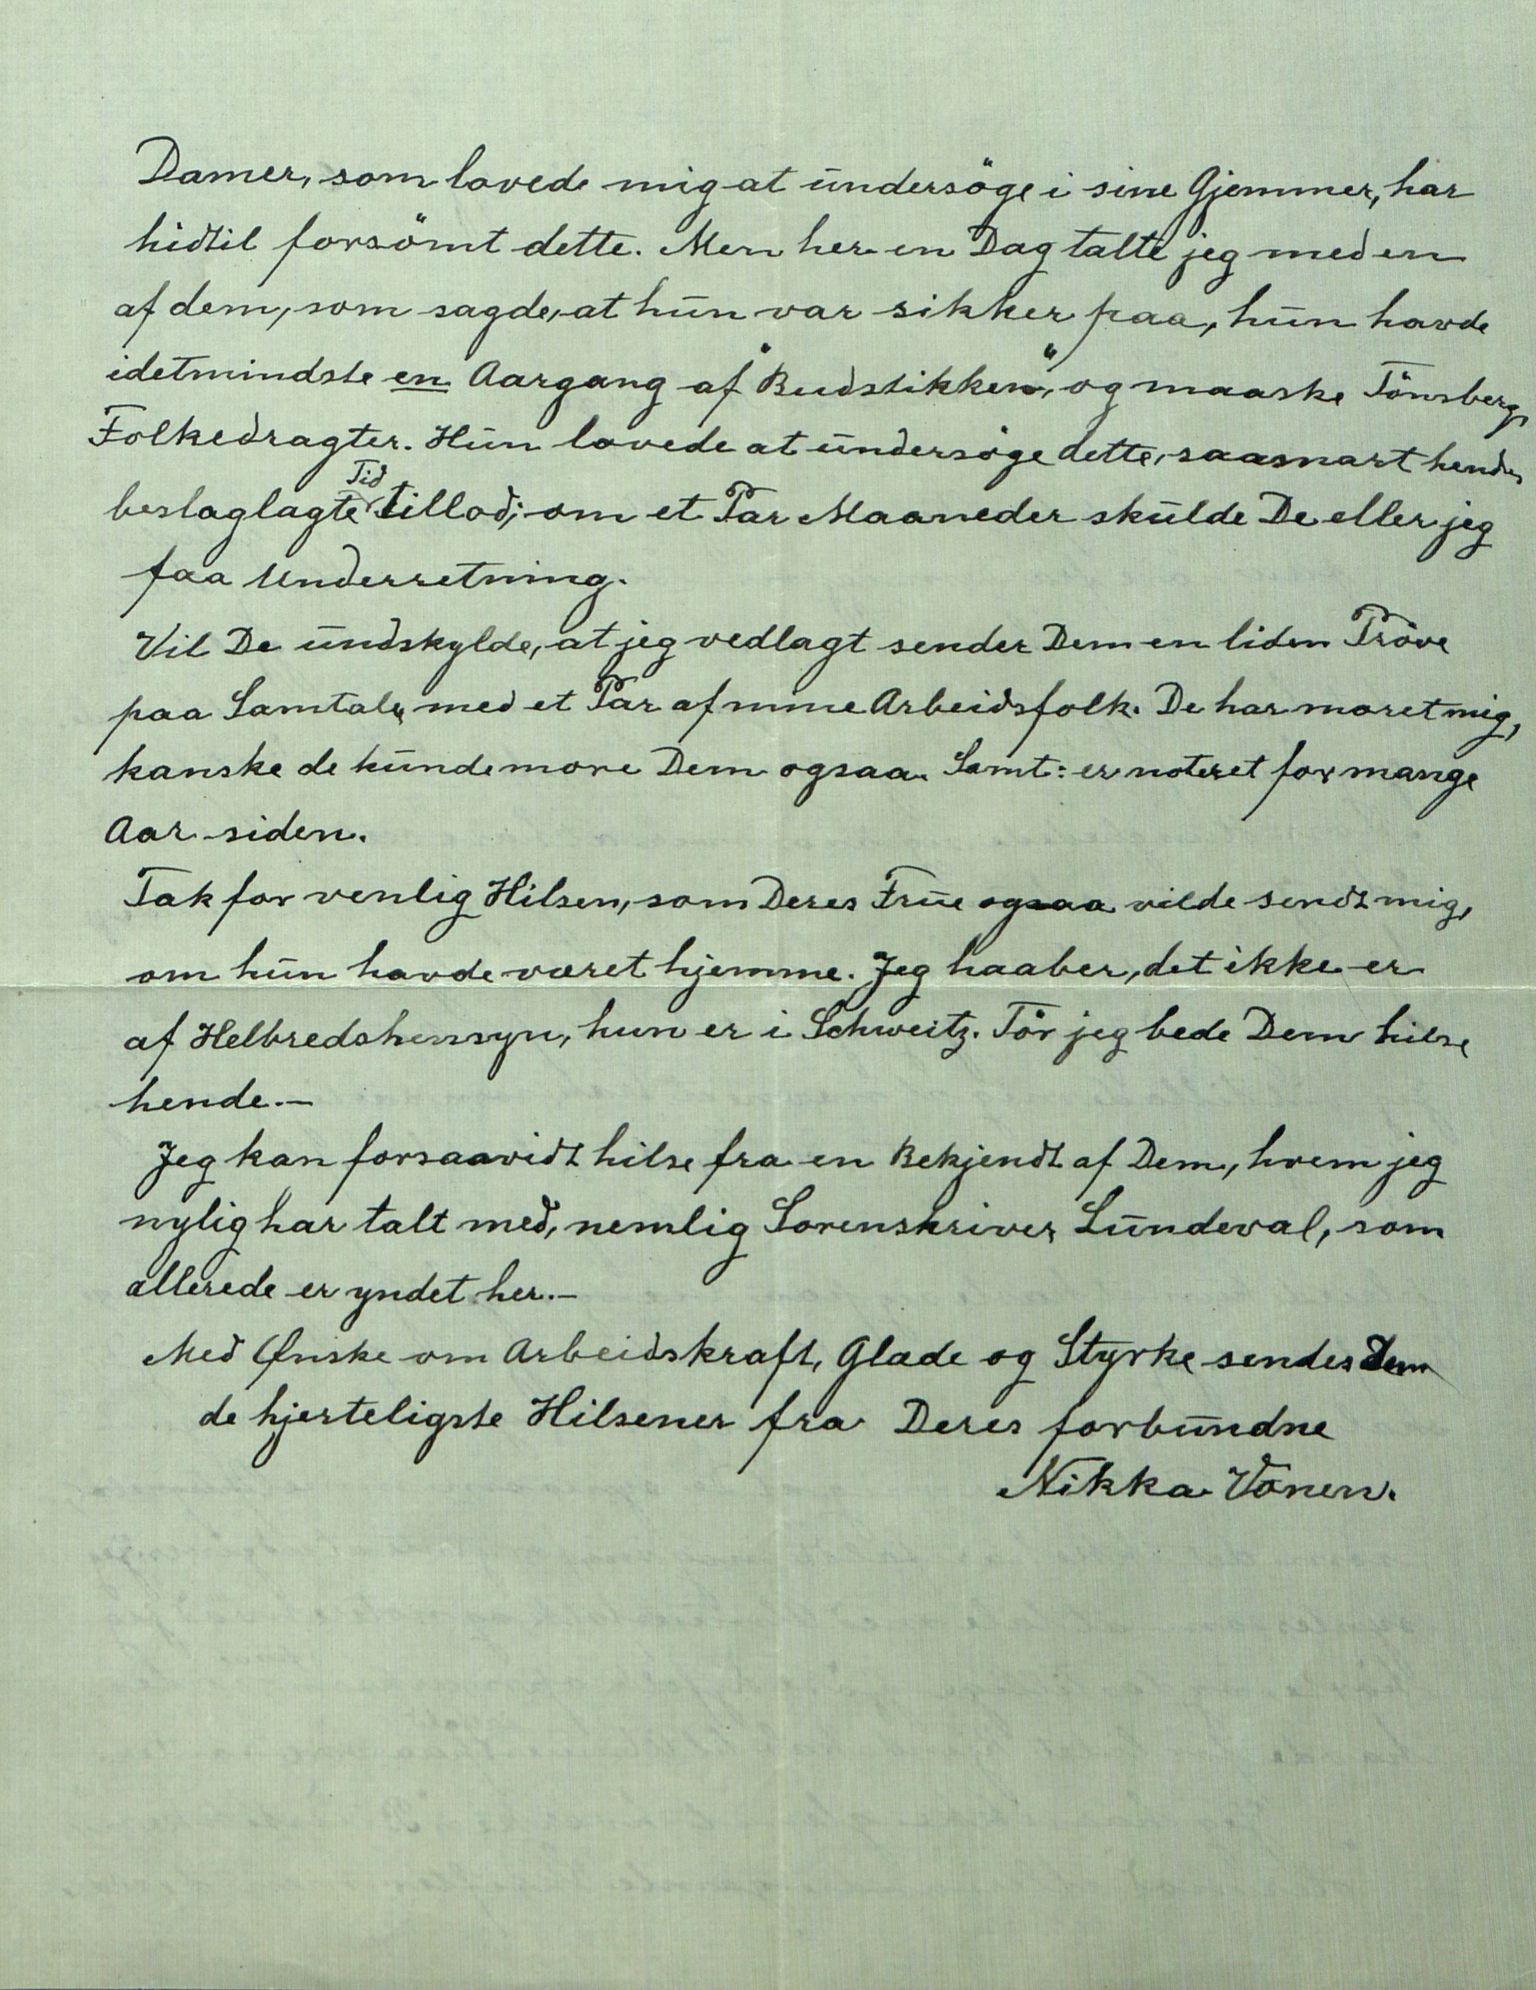 Damer, som lovede mig at undersöge i sine Gjemmer, har
hidtil forsömt dette. Men her en Dag talte jeg med en
af dem, som sagde, at hun var sikker paa, hun havde
idetmindste en Aargang af "Budstikken", og maaske Tönsbergs
Folkedragter. Hun lovede at undersöge dette, saasnart hendes
beslaglagte Tid tillod; om et Par Maaneder skulde De eller jeg
faa Underretning.
Vil De undskylde, at jeg vedlagt sender Dem en liden Pröve
paa Samtale med et Par af mine Arbeidsfolk. De har moret mig,
kanske de kunde more Dem ogsaa. Samt: er noteret for mange
Aar siden.
Tak for venlig Hilsen, som Deres Frue ogsaa vilde sendt mig,
om hun havde været hjemme. Jeg haaber, det ikke er
af Helbredshensyn, hun er i Schweitz. Tör jeg bede Dem hilse
hende.—
Jeg kan forsaavidt hilse fra en Bekjendt af Dem, hvem jeg
nylig har talt med, nemlig Sorenskriver Lundeval, som
allerede er yndet her.—
Med Ønske om Arbeidskraft, Glæde og Styrke sendes Dem
de hjerteligste Hilsener fra Deres forbundne
Nikka Vonen.